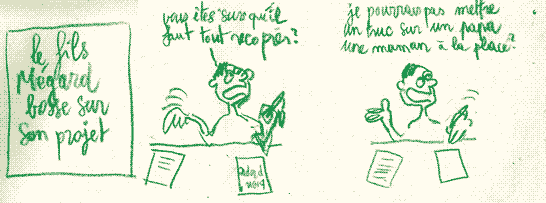 le fils
Mégard
bosse sur
son projet
vous êtes surs qu'il
faut tout recopier?
je pourrais pas mettre
un truc sur un papa
une maman à la place?